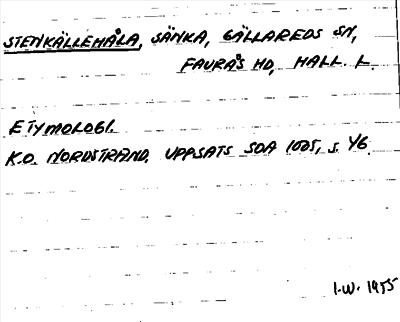 STENKÄLLEHÅLA, SÄNKA, GÄLLAREDS SN,
FAURÅS HD, HALL. L.
ETYMOLOGI.
K.O. NORDSTRAND. UPPSATS SOA 1005, S. 46.
I.W. 1955